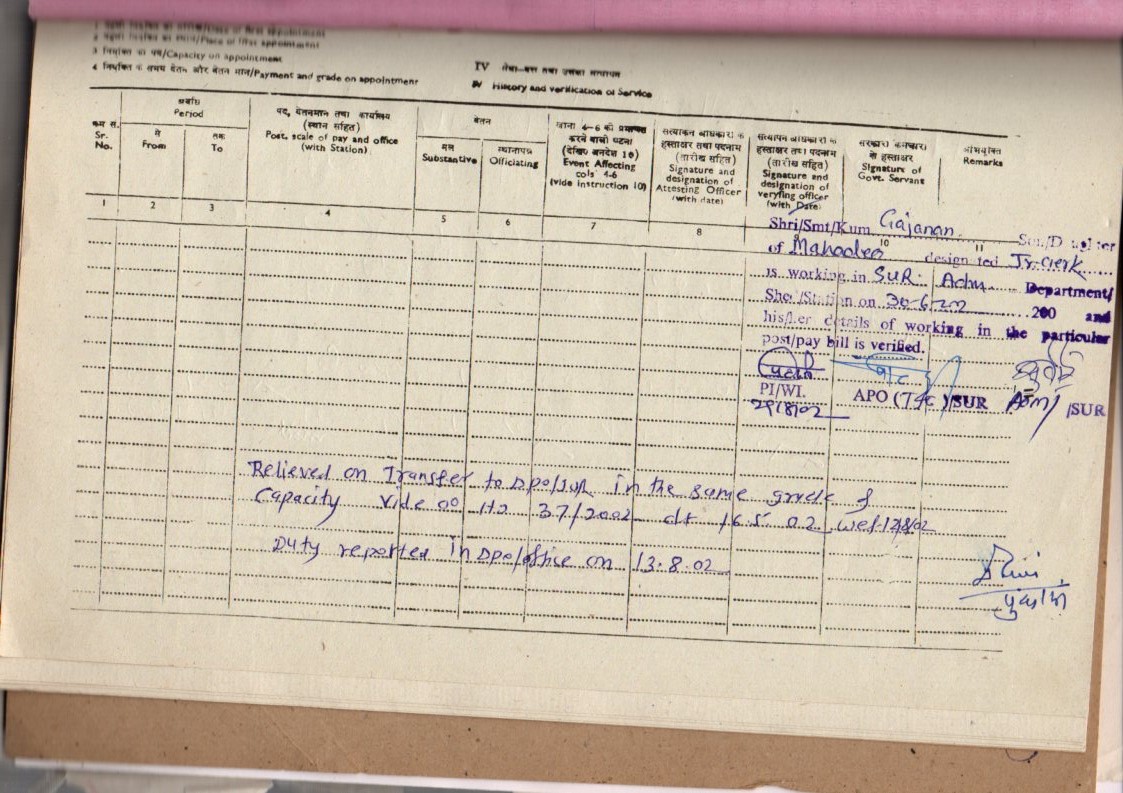 /Date of first appointment
/Place of first appointment
3 नियुक्ति का पद/Capacity on appointment
4 नियुक्ति के समय वेतन और वेतन मान/Payment and grade on appointment
IV सेवा-वृत्त तथा उसका सत्यापन
IV History and verification of Service
क्रम सं.
Sr. No.
अवधि
Period
से
From
तक
To
पद, वेतनमान तथा कार्यालय
(स्थान सहित)
Post, scale of pay and office
(with Station)
वेतन
मूल
Substantive
स्थानापन्न
Officiating
खाना 4-6 को प्रभावित
करने वाली घटना
(देखिए अनुदेश 10)
Event Affecting
cols 4-6
(vide instruction 10)
सत्यापन अधिकारी के
हस्ताक्षर तथा पदनाम
(तारीख सहित)
Signature and
designation of
Attesting Officer
(with date)
सत्यापन अधिकारी के
हस्ताक्षर तथा पदनाम
(तारीख सहित)
Signature and
designation of
veryfing officer
(with Date)
सरकारी कर्मचारी
के हस्ताक्षर
Signature of
Govt. Servant
अभियुक्ति
Remarks
1 2 3 4 5 6 7 8 10 11
Shri/Smt/Kum Gajanan Son/Daughter
of Mahadeo designated Jr. clerk
is working in SUR Adm Department/
Shed/Station on 30-6-202 200 and
his/her details of working in the particular
post/pay bill is verified.
PI/WI. APO (T&C)/SUR /SUR
29/8/02
Relieved on Transfer to DPO/SUR in the same grade &
Capacity vide OO No 37/2002 dt 16.5.02 wef 12/8/02
Duty reported in DPO/office on 13.8.02